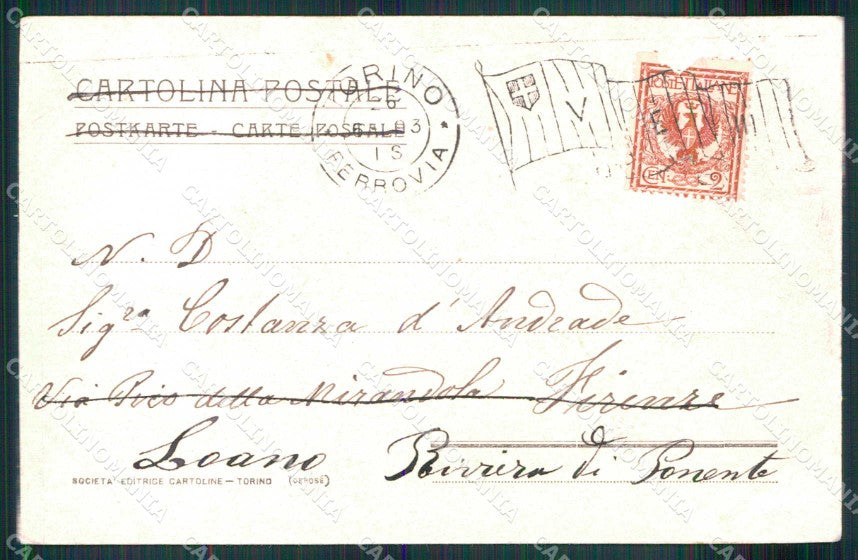 CARTOLINA POSTALE
POSTKARTE - CARTE POSTALE
TORINO
6
6 03
1S
FERROVIA *
V
POSTE ITALIANE
CENT. 2
N. D
Sig.ra Costanza d'Andrade
Via Pico della Mirandola Firenze
Loano Riviera di Ponente
SOCIETÀ EDITRICE CARTOLINE — TORINO (DEPOSÉ)
CARTOLINOMANIA